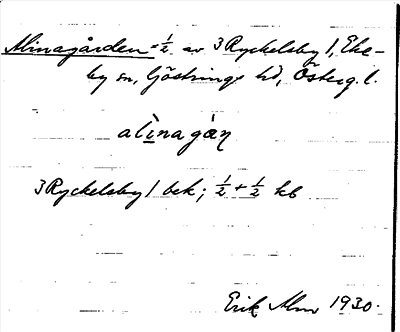 Alinagården = ½ av 3 Ryckelsby 1, Eke-
by sn, Göstrings hd, Österg. l.
alìnagàɳ
3 Ryckelsby 1 bek; ½ + ½ kb
Erik Alm 1930.